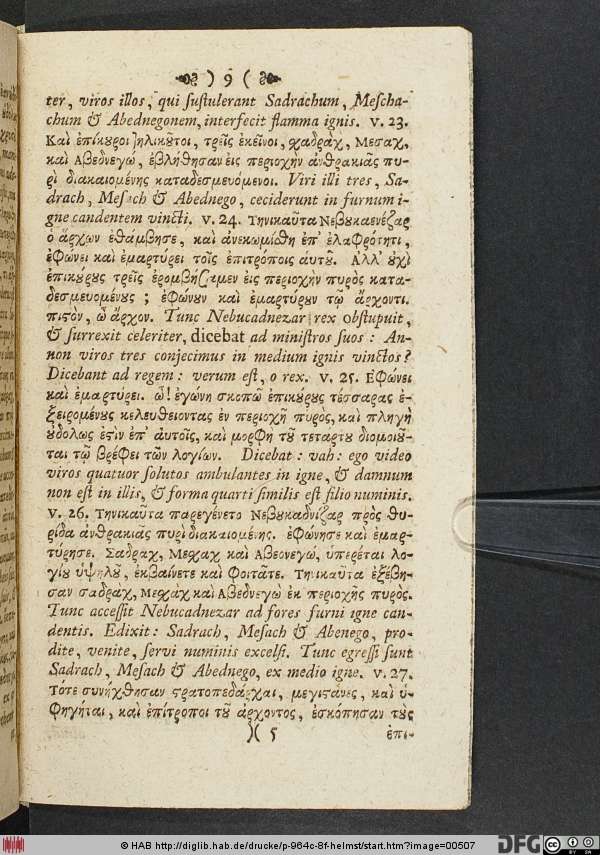 ) 9 (
ter, viros illos, qui ſuſtulerant Sadrachum, Meſcha-
chum & Abednegonem, interfecit flamma ignis. v. 23.
Καὶ ἐπίκȣροι τηλικȣ͂τοι, τρεῖς ἐκεῖνοι, χαδρὰχ, Μεσαχ,
καὶ Αβεδνεγώ, ἐβλήθησαν εἰς περιοχὴν ἀνθρακιᾶς πυ-
ρὶ διακαιομένης καταδεσμευόμενοι. Viri illi tres, Sa-
drach, Meſach & Abednego, ceciderunt in furnum i-
gne candentem vincti. v. 24. Τηνικαῦτα Νεβȣκαενέζας
ὁ ἄρχων ἐθάμβησε, καὶ ἀνεκωμίσθη ἐπ' ἐλαφρότητι,
ἐφώνει καὶ ἐμαρτύρει τοῖς ἐπιτρόποις αυτȣ. Αλλ' ȣχὶ
ἐπικȣ́ρȣς τρεῖς ἐρομβήσαμεν εἰς περιοχὴν πυρὸς κατα-
δεσμευομένȣς ; ἐφώνȣν καὶ ἐμαρτύρȣν τῷ ἄρχοντι.
πιστὸν, ὦ ἄρχον. Tunc Nebucadnezar rex obſtupuit,
& ſurrexit celeriter, dicebat ad miniſtros ſuos: An-
non viros tres conjecimus in medium ignis vinctos?
Dicebant ad regem: verum eſt, o rex. v. 25. Εφώνει
καὶ ἐμαρτύρει. ὦ! ἐγώνη σκοπῶ ἐπικȣ́ρȣς τέσσαρας ἐ-
ξειρομένȣς κελευθειοντας ἐν περιοχῇ πυρὸς, καὶ πληγὴ
ȣδόλως ἐστὶν ἐπ' ἀυτοῖς, καὶ μορφὴ τȣ͂ τετάρτȣ διομοιȣ͂-
ται τῷ βρέφει τῶν λογίων. Dicebat: vah: ego video
viros quatuor ſolutos ambulantes in igne, & damnum
non eſt in illis, & forma quarti ſimilis eſt filio numinis.
v. 26. Τηνικαῦτα παρεγένετο Νεβȣκαδνίζαρ πρὸς θυ-
ρίδα ἀνθρακιᾶς πυρὶ διακαιομένης. ἐφώνησε καὶ ἐμαρ-
τύρησε. Σαδρὰχ, Μεσαχ καὶ Αβεονεγώ, ὑπερέται λο-
γίȣ ὑψηλȣ͂, ἐκβαίνετε καὶ φοιτᾶτε. Τηνικαῦτα ἐξέβη-
σαν σαδρὰχ, Μεσὰχ καὶ Αβεδνεγὼ ἐκ περιοχῆς πυρὸς.
Tunc acceſſit Nebucadnezar ad fores furni igne can-
dentis. Edixit: Sadrach, Meſach & Abenego, pro-
dite, venite, ſervi numinis excelſi. Tunc egreſſi ſunt
Sadrach, Meſach & Abednego, ex medio igne. v. 27.
Τότε συνήχθησαν στρατοπεδάρχαι, μεγιστᾶνες, καὶ ὑ-
φηγήται, καὶ ἐπίτροποι τȣ͂ ἄρχοντος, ἐσκόπησαν τȣ̀ς
)( 5 ἐπι-
© HAB http://diglib.hab.de/drucke/p-964c-8f-helmst/start.htm?image=00507
DFG
CC BY SA